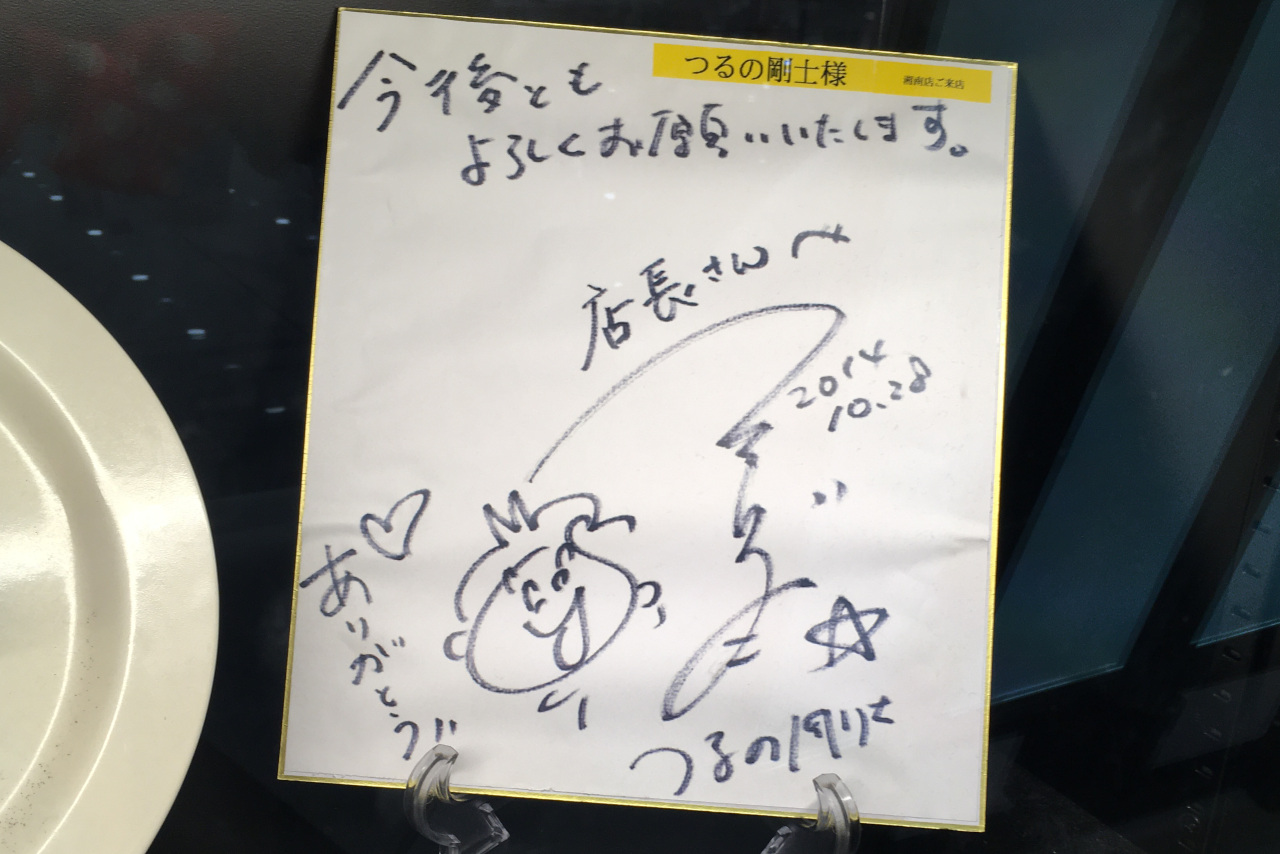 つるの剛士様 湘南店ご来店
今後とも
よろしくお願いいたします。
店長さんへ
2014
10.28
ありがとう!!
つるの剛士